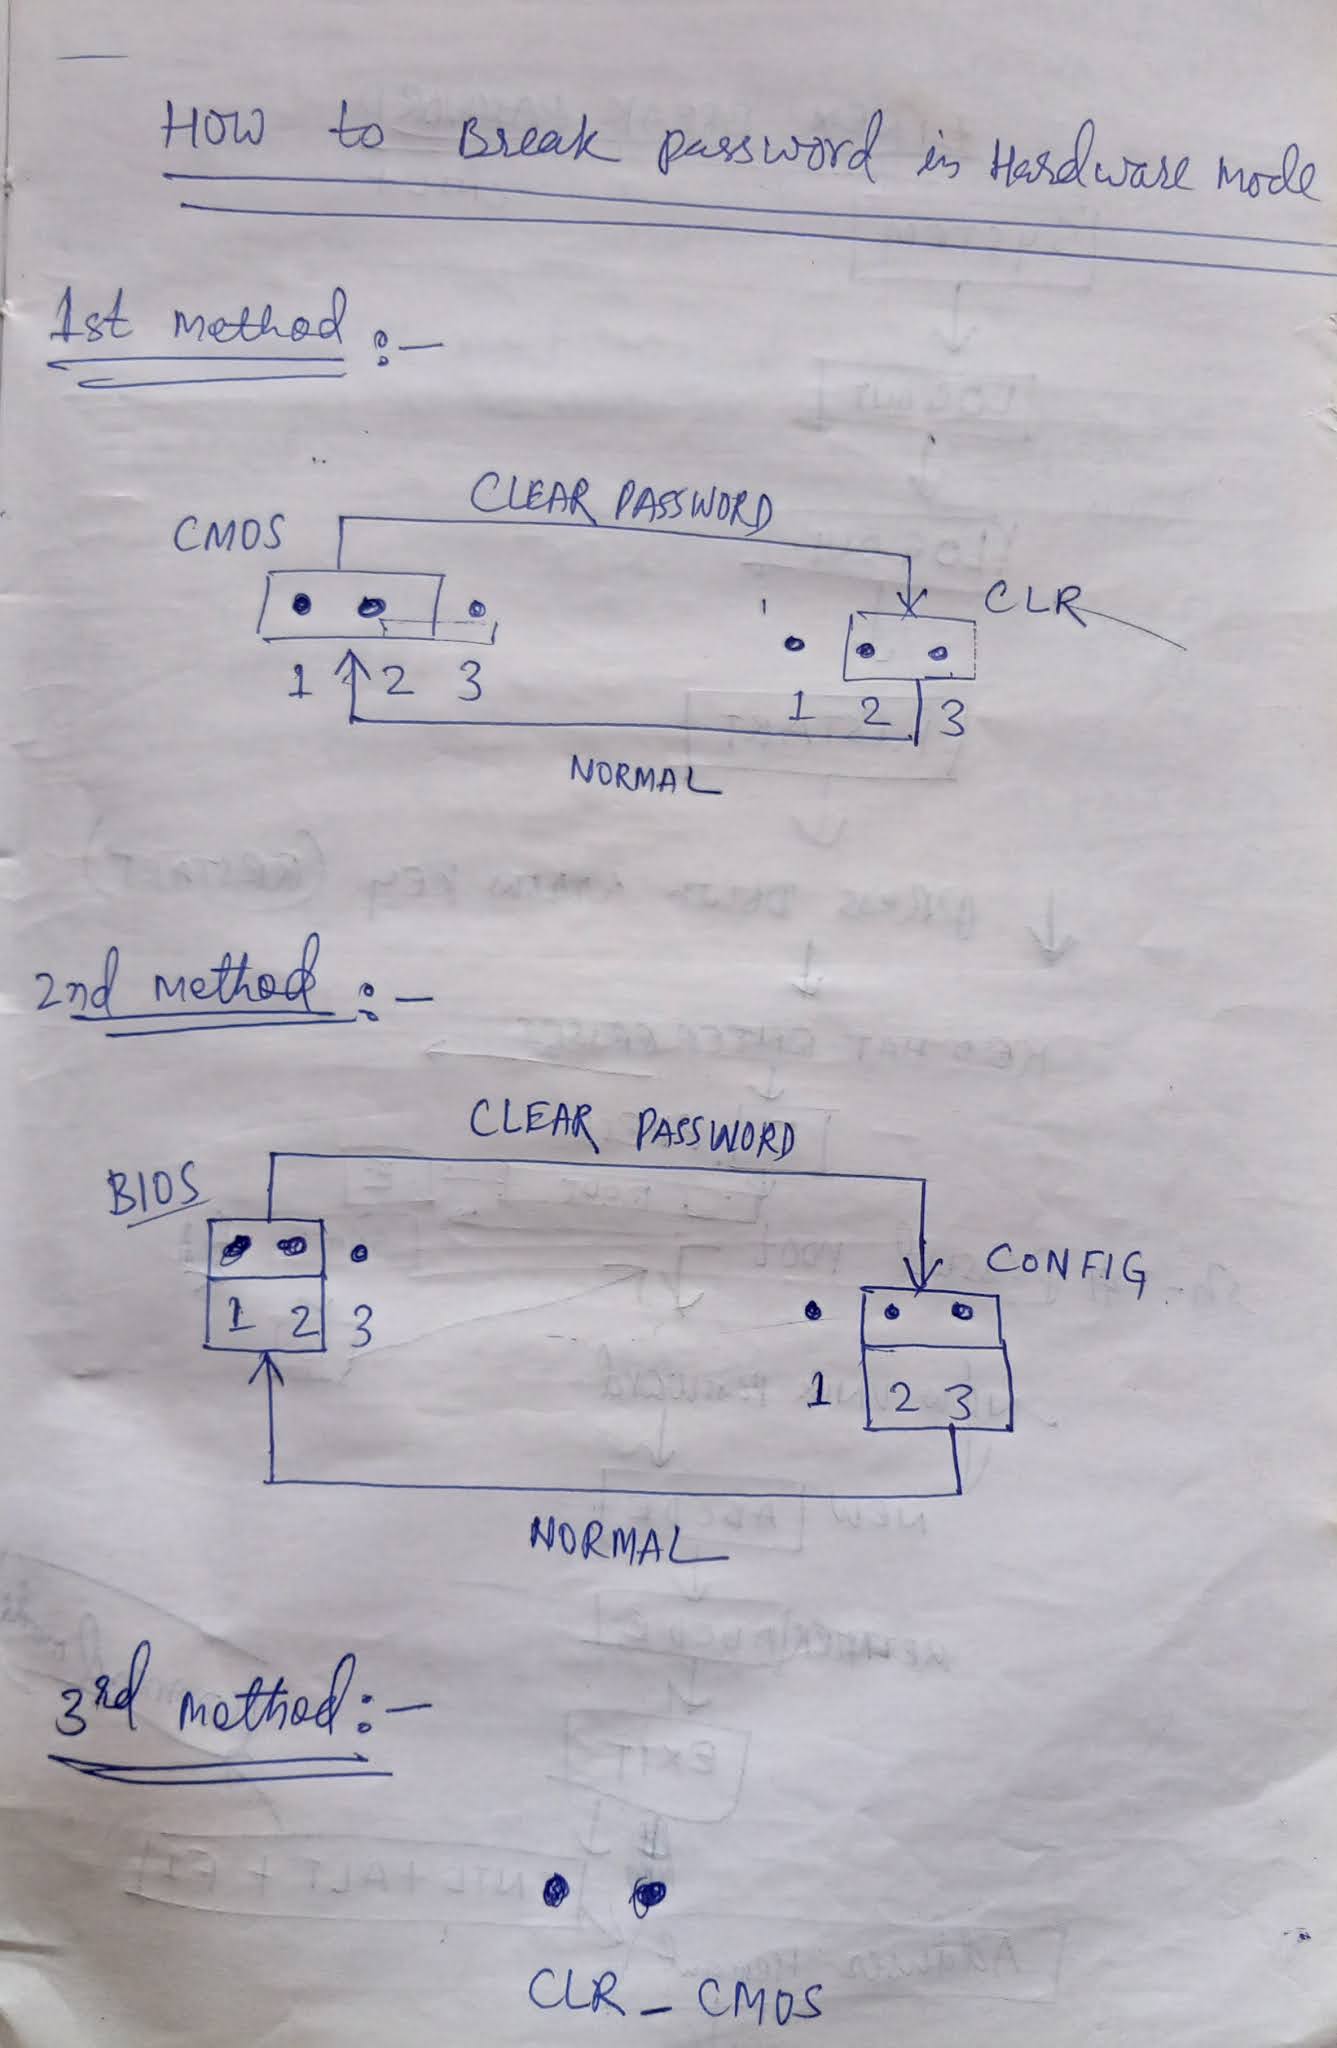 How to Break password in Hardware mode
1st method :-
CLEAR PASSWORD
CMOS
CLR
1 2 3
1 2 3
NORMAL
2nd method :-
CLEAR PASSWORD
BIOS
CONFIG
1 2 3
1 2 3
NORMAL
3rd method :-
CLR - CMOS